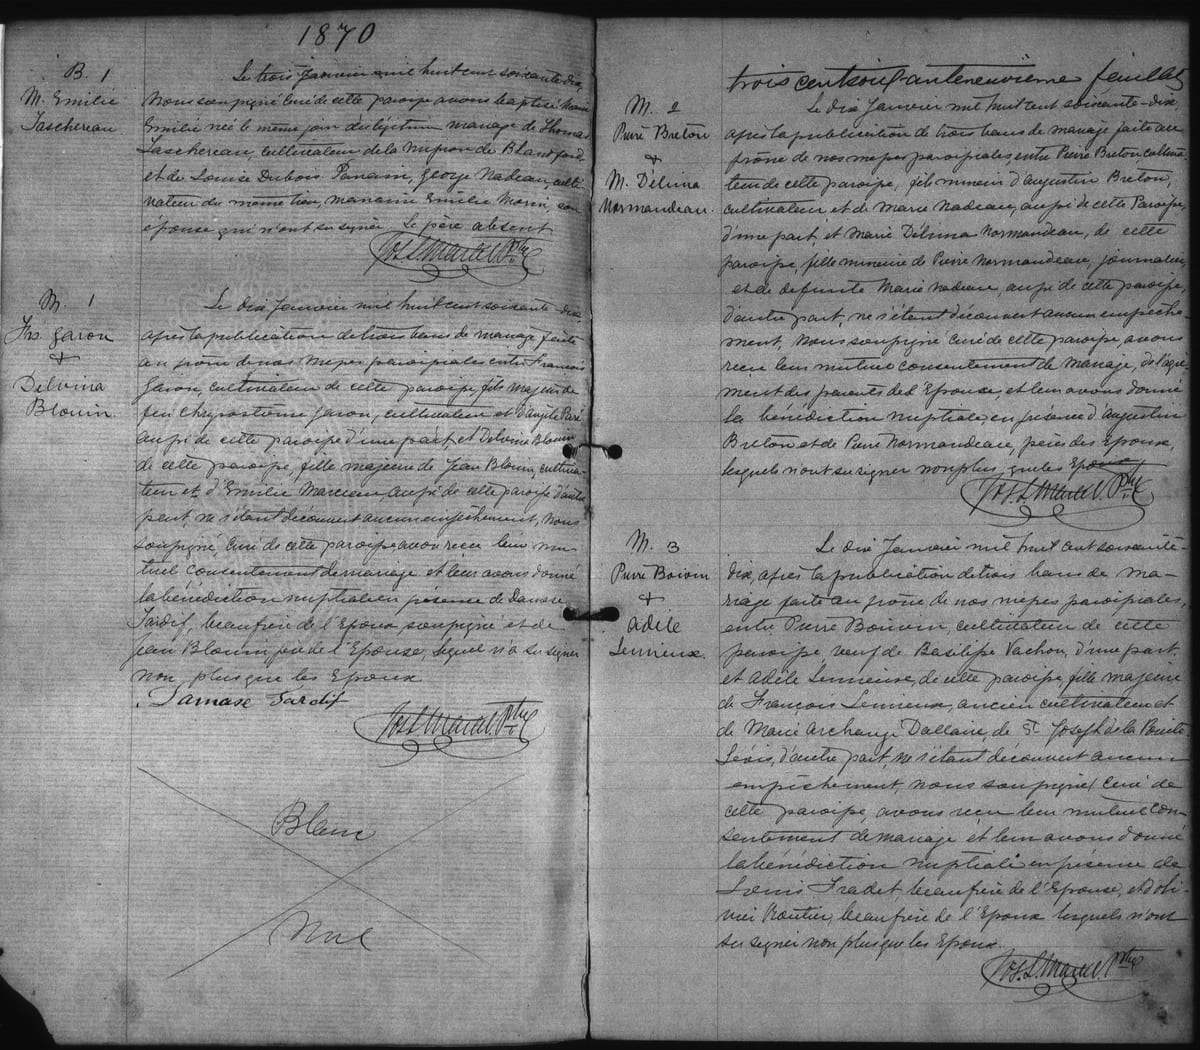 1870
B. 1
M. Emilie
Taschereau
Le trois Janvier mil huit cent soixante-dix,
Nous soussigné Curé de cette paroisse avons baptisé Marie
Emilie née le même jour du légitime mariage de Thomas
Taschereau, cultivateur de la mission de Blandford
et de Louise Dubois. Parrain, George Nadeau, culti-
vateur du même lieu, marraine Emilie Morin, son
épouse qui n'ont su signer. Le père absent
Jos. L. Marcel Ptre
M. 1
Frs. Garon
+
Delvina
Blouin
Le dix Janvier mil huit cent soixante-dix,
après la publication de trois bans de mariage faite
au prône de nos messes paroissiales entre François
Garon, cultivateur de cette paroisse, fils majeur de
feu Chrysostome Garon, cultivateur et d'Angèle Paré
aussi de cette paroisse d'une part, et Delvina Blouin
de cette paroisse, fille majeure de Jean Blouin, cultiva-
teur et d'Emilie Marceau, aussi de cette paroisse d'autre
part, ne s'étant découvert aucun empêchement, Nous
soussigné, Curé de cette paroisse avons reçu leur mu-
tuel consentement de mariage et leur avons donné
la bénédiction nuptiale en présence de Damase
Tardif, beaufrère de l'Epoux soussigné et de
Jean Blouin, père de l'Epouse, lequel n'a su signer
non plus que les Epoux
Damase Tardif
Jos. L. Marcel Ptre
Blanc
Nul
trois cent soixante neuvième feuillet
M. 2
Pierre Breton
+
M. Délima
Normandeau.
Le dix Janvier mil huit cent soixante-dix,
après la publication de trois bans de mariage faite au
prône de nos messes paroissiales entre Pierre Breton cultiva-
teur de cette paroisse, fils mineur d'Augustin Breton,
cultivateur et de Marie Nadeau, aussi de cette Paroisse,
d'une part, et Marie Délima Normandeau, de cette
paroisse, fille mineure de Pierre Normandeau, journalier,
et de defunte Marie Nadeau, aussi de cette paroisse,
d'autre part, ne s'étant découvert aucun empêche-
ment, Nous soussigné Curé de cette paroisse, avons
reçu leur mutuel consentement de mariage, de l'agré-
ment des parents de l'Epouse, et leur avons donné
la bénédiction nuptiale, en présence d'Augustin
Breton et de Pierre Normandeau, pères des Epoux,
lesquels n'ont su signer non plus que les Epoux
Jos. L. Marcel Ptre
M. 3
Pierre Boivin
+
Adèle
Lemieux.
Le dix Janvier mil huit cent soixante-
dix, après la publication de trois bans de ma-
riage faite au prône de nos messes paroissiales,
entre Pierre Boivin, cultivateur de cette
paroisse veuf de Basilisse Vachon, d'une part
et Adèle Lemieux, de cette paroisse, fille majeure
de François Lemieux, ancien cultivateur et
de Marie Archange Dallaire, de St Joseph de la Pointe
Lévis, d'autre part, ne s'étant découvert aucun
empêchement, nous soussigné Curé de
cette paroisse, avons reçu leur mutuel con-
sentement de mariage et leur avons donné
la bénédiction nuptiale en présence de
Louis Fradet, beaufrère de l'Epouse, et d'Oli-
vier Routier, beaufrère de l'Epoux lesquels n'ont
su signer non plus que les Epoux.
Jos. L. Marcel Ptre